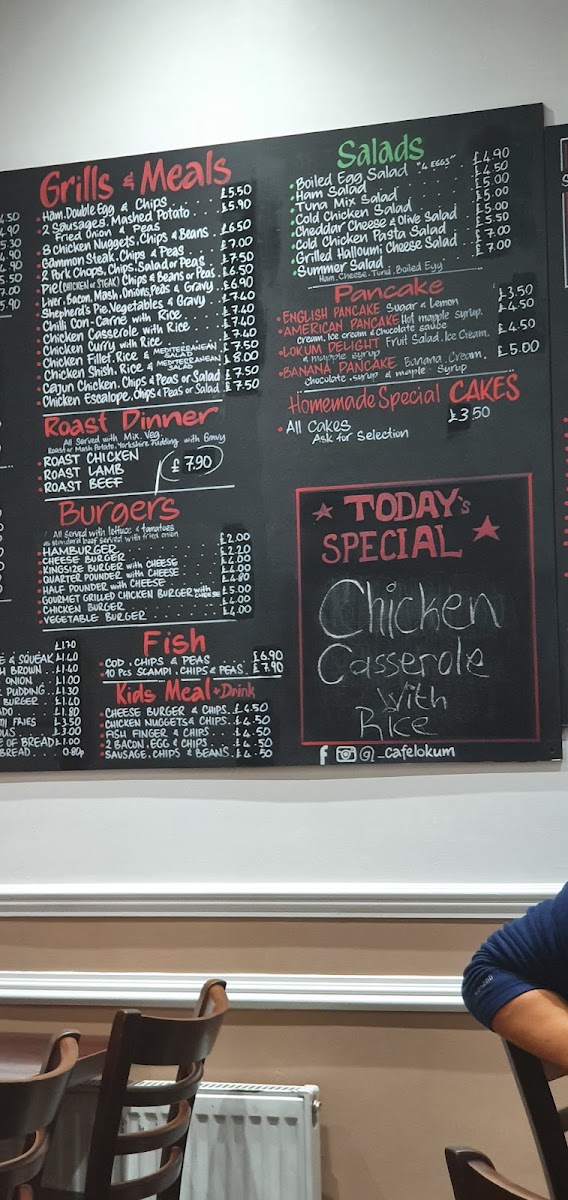 Grills & Meals
Ham, Double Egg & Chips £5.50
2 Sausages, Mashed Potato £5.90
Fried Onion & Peas
8 Chicken Nuggets, Chips & Beans £6.50
Gammon Steak, Chips & Peas £7.00
2 Pork Chops, Chips, Salad or Peas £7.50
Pie (CHICKEN or STEAK) Chips & Beans or Peas £6.50
Liver, Bacon, Mash, Onions, Peas & Gravy £6.90
Shepherd's Pie, Vegetables & Gravy £7.40
Chilli Con-Carne with Rice £7.40
Chicken Casserole with Rice £7.40
Chicken Curry with Rice £7.40
Chicken Fillet, Rice & MEDITERRANEAN SALAD £7.50
Chicken Shish, Rice & MEDITERRANEAN SALAD £8.00
Cajun Chicken, Chips & Peas or Salad £7.50
Chicken Escalope, Chips & Peas or Salad £7.50
Roast Dinner
All Served with Mix. Veg.
Roast or Mash Potato, Yorkshire Pudding, with Gravy
ROAST CHICKEN
ROAST LAMB £7.90
ROAST BEEF
Burgers
All served with lettuce & tomatoes
as standard beef served with fried onion
HAMBURGER £2.00
CHEESE BURGER £2.20
KINGSIZE BURGER with CHEESE £4.00
QUARTER POUNDER with CHEESE £4.00
HALF POUNDER with CHEESE £4.80
GOURMET GRILLED CHICKEN BURGER with CHEESE £5.00
CHICKEN BURGER £4.00
VEGETABLE BURGER £4.00
Fish
COD, CHIPS & PEAS £6.90
10 Pcs SCAMPI, CHIPS & PEAS £7.90
Kids Meal + Drink
CHEESE BURGER & CHIPS £4.50
CHICKEN NUGGETS & CHIPS £4.50
FISH FINGER & CHIPS £4.50
2 BACON, EGG & CHIPS £4.50
SAUSAGE, CHIPS & BEANS £4.50
£1.70
& SQUEAK £1.40
BROWN £1.00
ONION £1.00
PUDDING £1.30
BURGER £1.40
£1.80
FRIES £3.50
£3.00
OF BREAD £1.00
BREAD 0.80p
Salads
Boiled Egg Salad "4 EGGS" £4.90
Ham Salad £4.50
Tuna Mix Salad £5.00
Cold Chicken Salad £5.00
Cheddar Cheese & Olive Salad £5.00
Cold Chicken Pasta Salad £5.50
Grilled Halloumi Cheese Salad £7.00
Summer Salad £7.00
Ham, Cheese, Tuna, Boiled Egg
Pancake
ENGLISH PANCAKE Sugar & Lemon £3.50
AMERICAN PANCAKE Hot mapple syrup, £4.50
Cream, Ice cream & Chocolate sauce
LOKUM DELIGHT Fruit Salad, Ice Cream, £4.50
& mapple syrup
BANANA PANCAKE Banana, Cream, £5.00
chocolate, syrup & maple syrup
Homemade Special CAKES
All Cakes £3.50
Ask for Selection
TODAY's
SPECIAL
Chicken
Casserole
with
Rice
f @_cafelokum